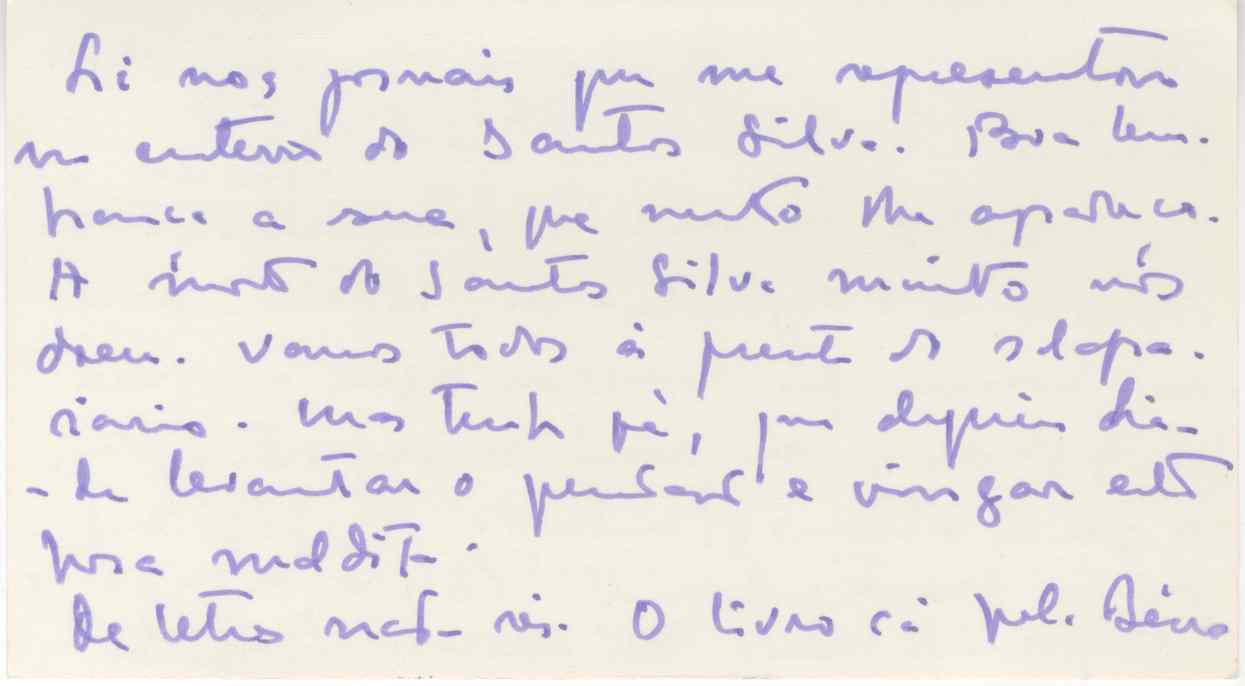 Li nos jornais que me representou
no enterro do Santos Silva. Boa lem-
brança a sua, que muito lhe agradeço.
A morte do Santos Silva muito nos
doeu. Vamos todos à frente do
Mas tenho fé, que alguém há-
-de levantar o pendão e vingar esta
hora maldita.
De letras nada sei. O livro cá pela Beira